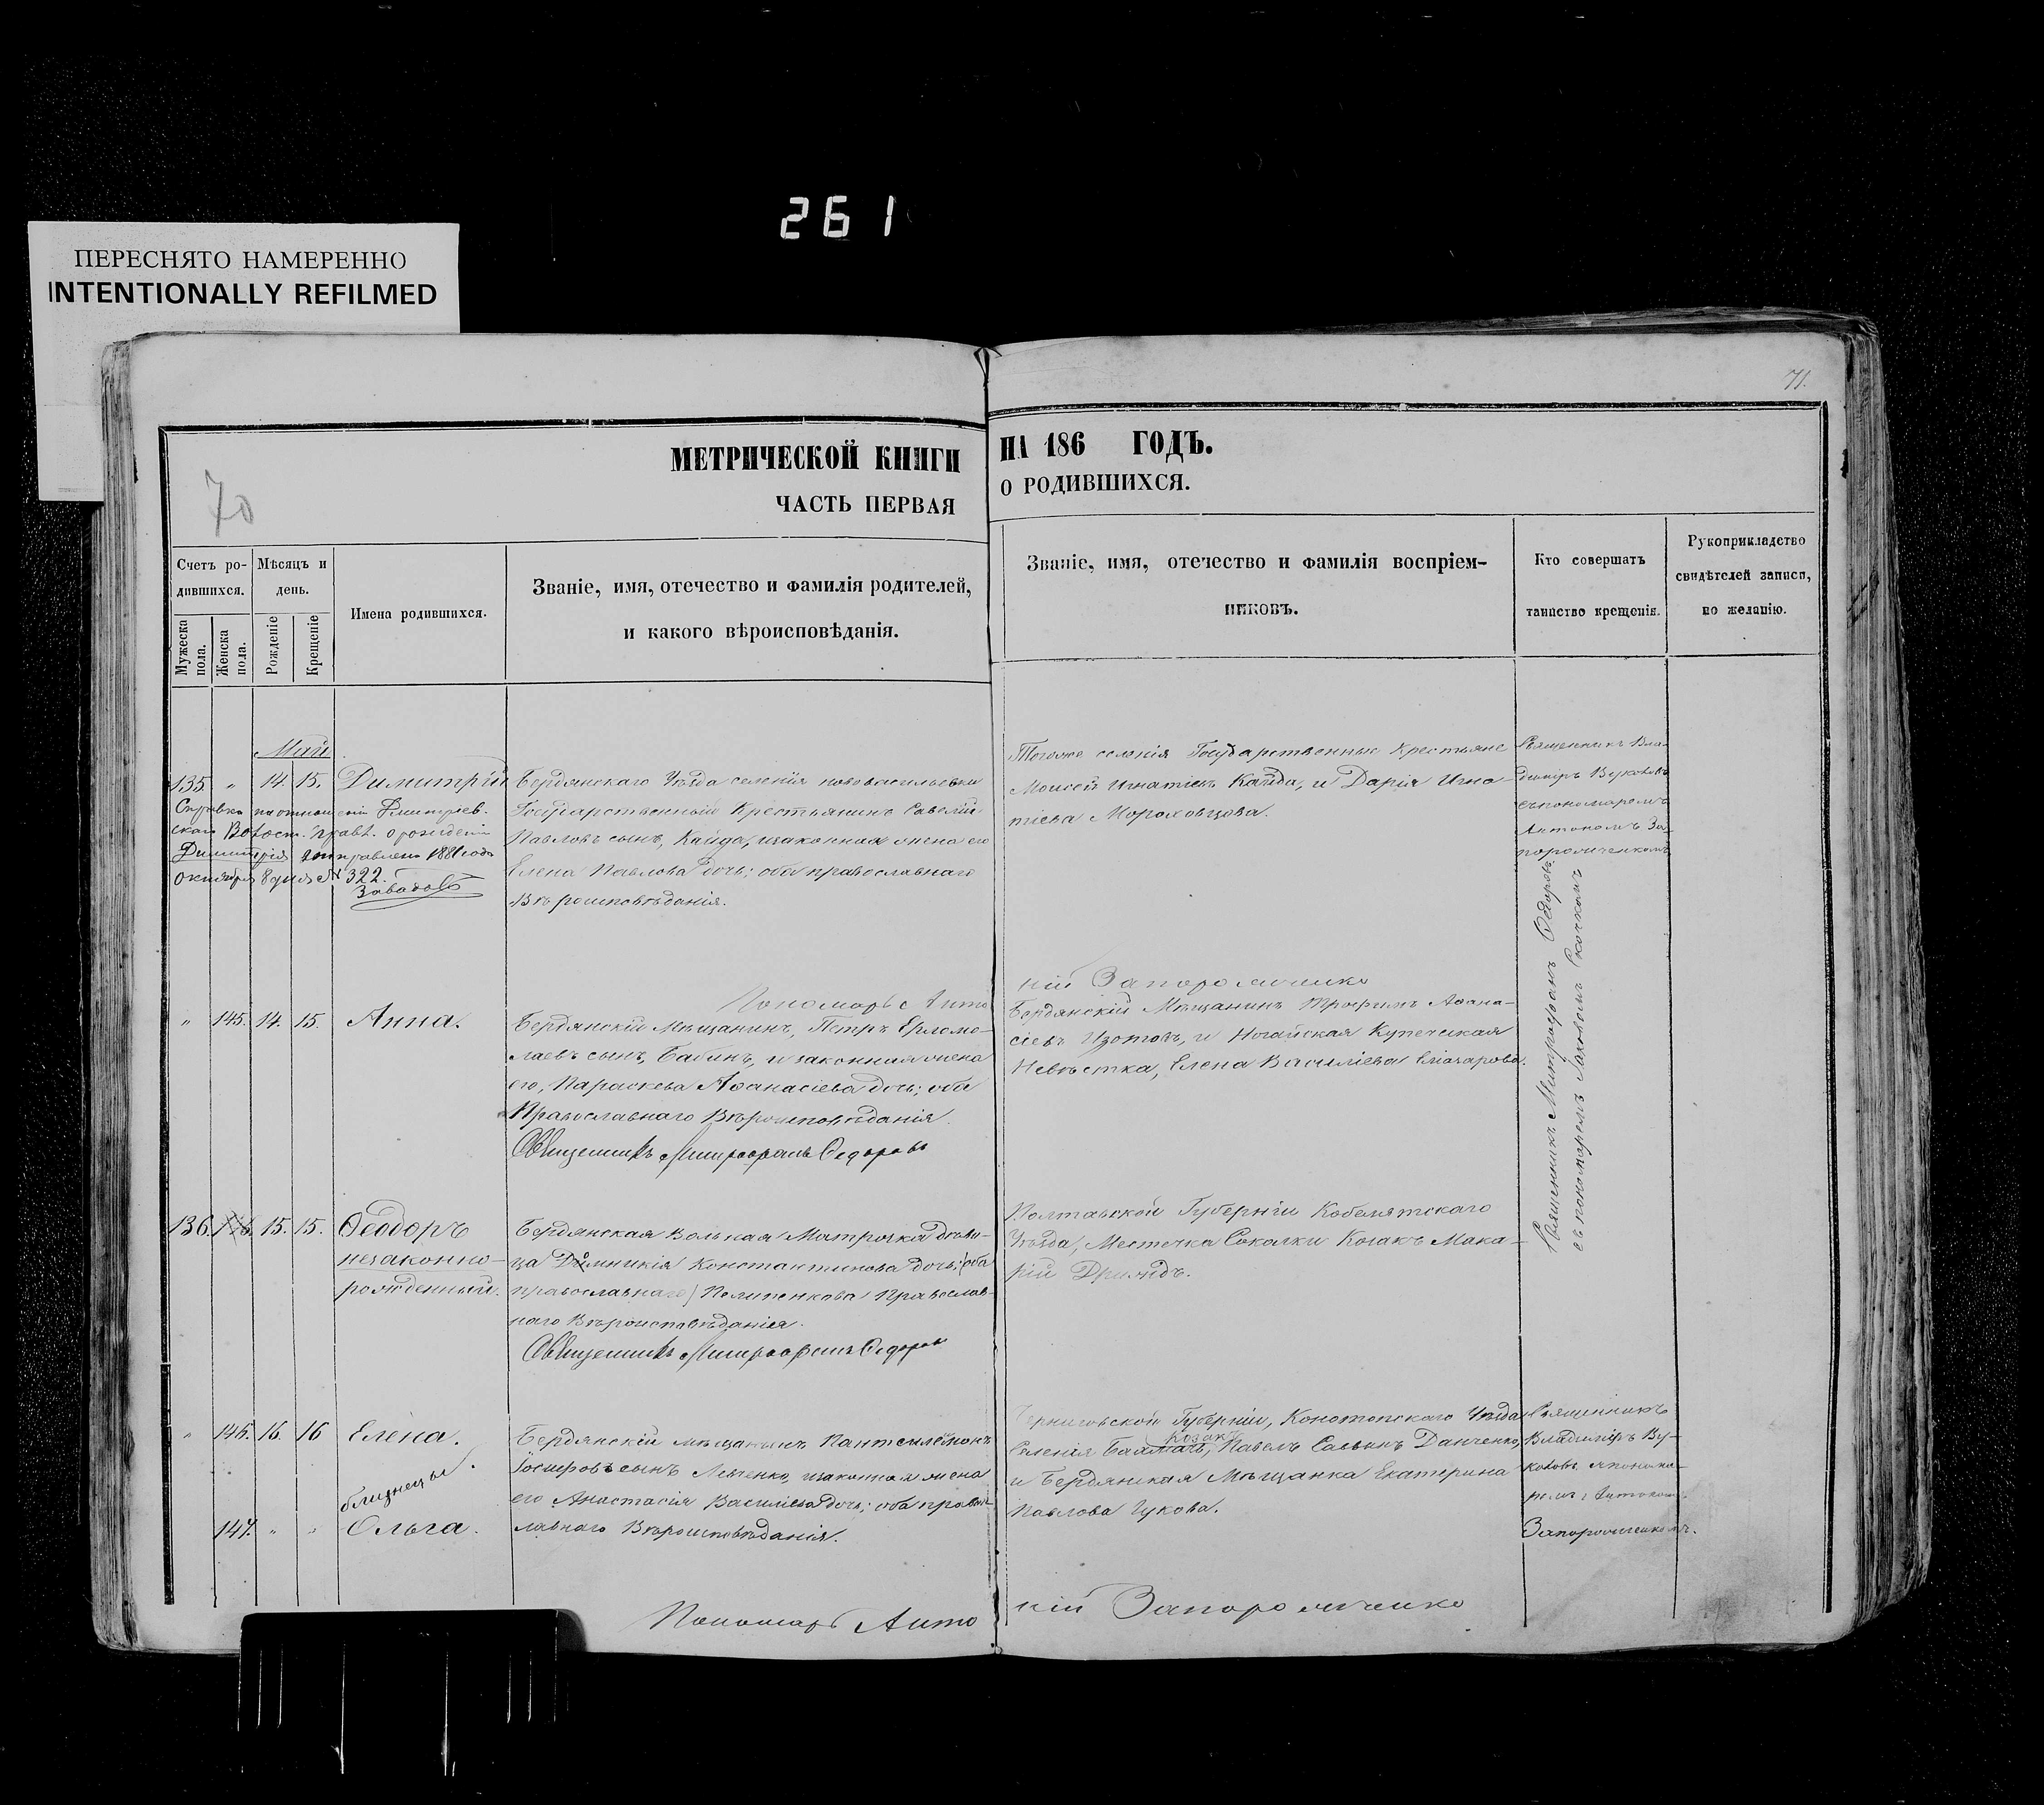 261
ПЕРЕСНЯТО НАМЕРЕННО
INTENTIONALLY REFILMED
71.
70
МЕТРИЧЕСКОЙ КНИГИ НА 186 ГОДЪ.
ЧАСТЬ ПЕРВАЯ О РОДИВШИХСЯ.
Счетъ ро-
дившихся.
Мужеска пола.
Женска пола.
Мѣсяцъ и
день.
Рожденіе
Крещеніе
Имена родившихся.
Званіе, имя, отечество и фамилія родителей,
и какого вѣроисповѣданія.
Званіе, имя, отечество и фамилія воспріем-
никовъ.
Кто совершатъ
таинство крещенія.
Рукоприкладство
свидѣтелей записи,
по желанію.
Май
135. „ 14. 15. Димитрій
Справка по отношенію Дмитріев-
скаго Волост. Правл. о рожденіи
Димитрія отправлена 1881 года
Октября 8 дня № 322.
Бердянскаго Уѣзда селенія нововасильевки
Государственный Крестьянинъ Савелій
Павловъ сынъ, Кайда, и законная жена его
Елена Павлова дочь; оба православнаго
Вѣроисповѣданія.
Тогоже селенія Государственные крестьяне
Моисей Игнатіевъ Кайда, и Дарія Игна-
тіева Мороховцова.
Священникъ Вла-
диміръ Вуколовъ
съ пономаремъ
Антоніемъ За-
порожченкомъ
Пономарь Анто
ній Запорожченко
„ 145. 14. 15. Анна.
Бердянскій Мѣщанинъ, Петръ Ермо-
лаевъ сынъ, Бабинъ, и законная жена
его, Параскева Аѳанасіева дочь; оба
Православнаго Вѣроисповѣданія.
Священникъ Митрофанъ Ѳедоровъ
Бердянскій Мѣщанинъ Трофимъ Аѳана-
сіевъ Изотовъ, и Ногайская Купеческая
Невѣстка, Елена Василіева Еліазарова.
Священникъ Митрофанъ Ѳедоровъ
съ пономаремъ Іаковомъ Скочкомъ
136. 15. 15. Ѳеодоръ
незаконно-
рожденный.
Бердянская Вольная Матроска дѣви-
ца Домникія Константинова дочь; (оба
православнаго) Пелипенкова Православ-
наго Вѣроисповѣданія.
Священникъ Митрофанъ Ѳедоровъ
Полтавской Губерніи Кобелятскаго
Уѣзда, Местечка Соколки Козакъ Мака-
рій
„ 146. 16. 16 Елена.
близнецы.
147. „ „ Ольга.
Бердянскій мѣщанинъ Пантелеймонъ
Іосифовъ сынъ Левченко, и законная жена
его Анастасія Василіева дочь; оба правос-
лавнаго Вѣроисповѣданія.
Черниговской Губерніи, Конотопскаго Уѣзда
козакъ
Селенія Павелъ Саввинъ Данченко,
и Бердянская Мѣщанка Екатерина
Павлова Чукова.
Священникъ
Владиміръ Ву-
коловъ с понома-
ремъ Антоніемъ
Запорожченкомъ.
Пономарь Анто
ній Запорожченко